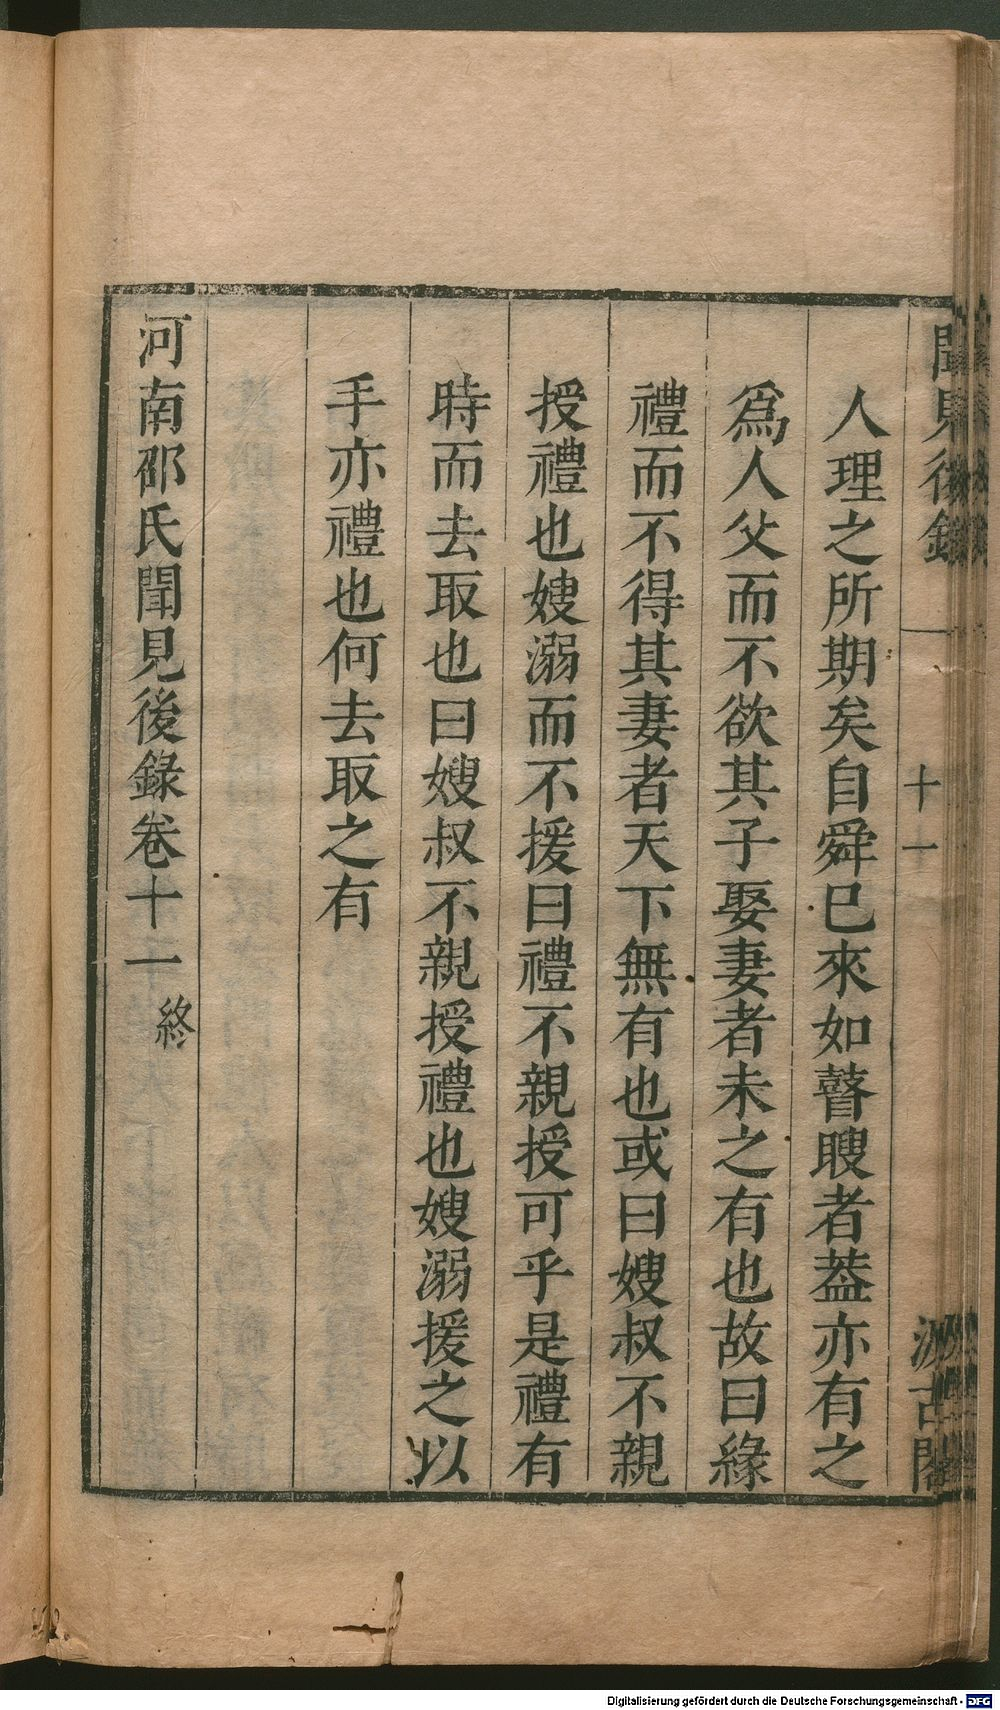 聞見後錄
十一
汲古閣
人理之所期矣自舜巳來如瞽瞍者葢亦有之
爲人父而不欲其子娶妻者未之有也故曰緣
禮而不得其妻者天下無有也或曰嫂叔不親
授禮也嫂溺而不援曰禮不親授可乎是禮有
時而去取也曰嫂叔不親授禮也嫂溺援之以
手亦禮也何去取之有
河南邵氏聞見後錄卷十一 終
Digitalisierung gefördert durch die Deutsche Forschungsgemeinschaft - DFG